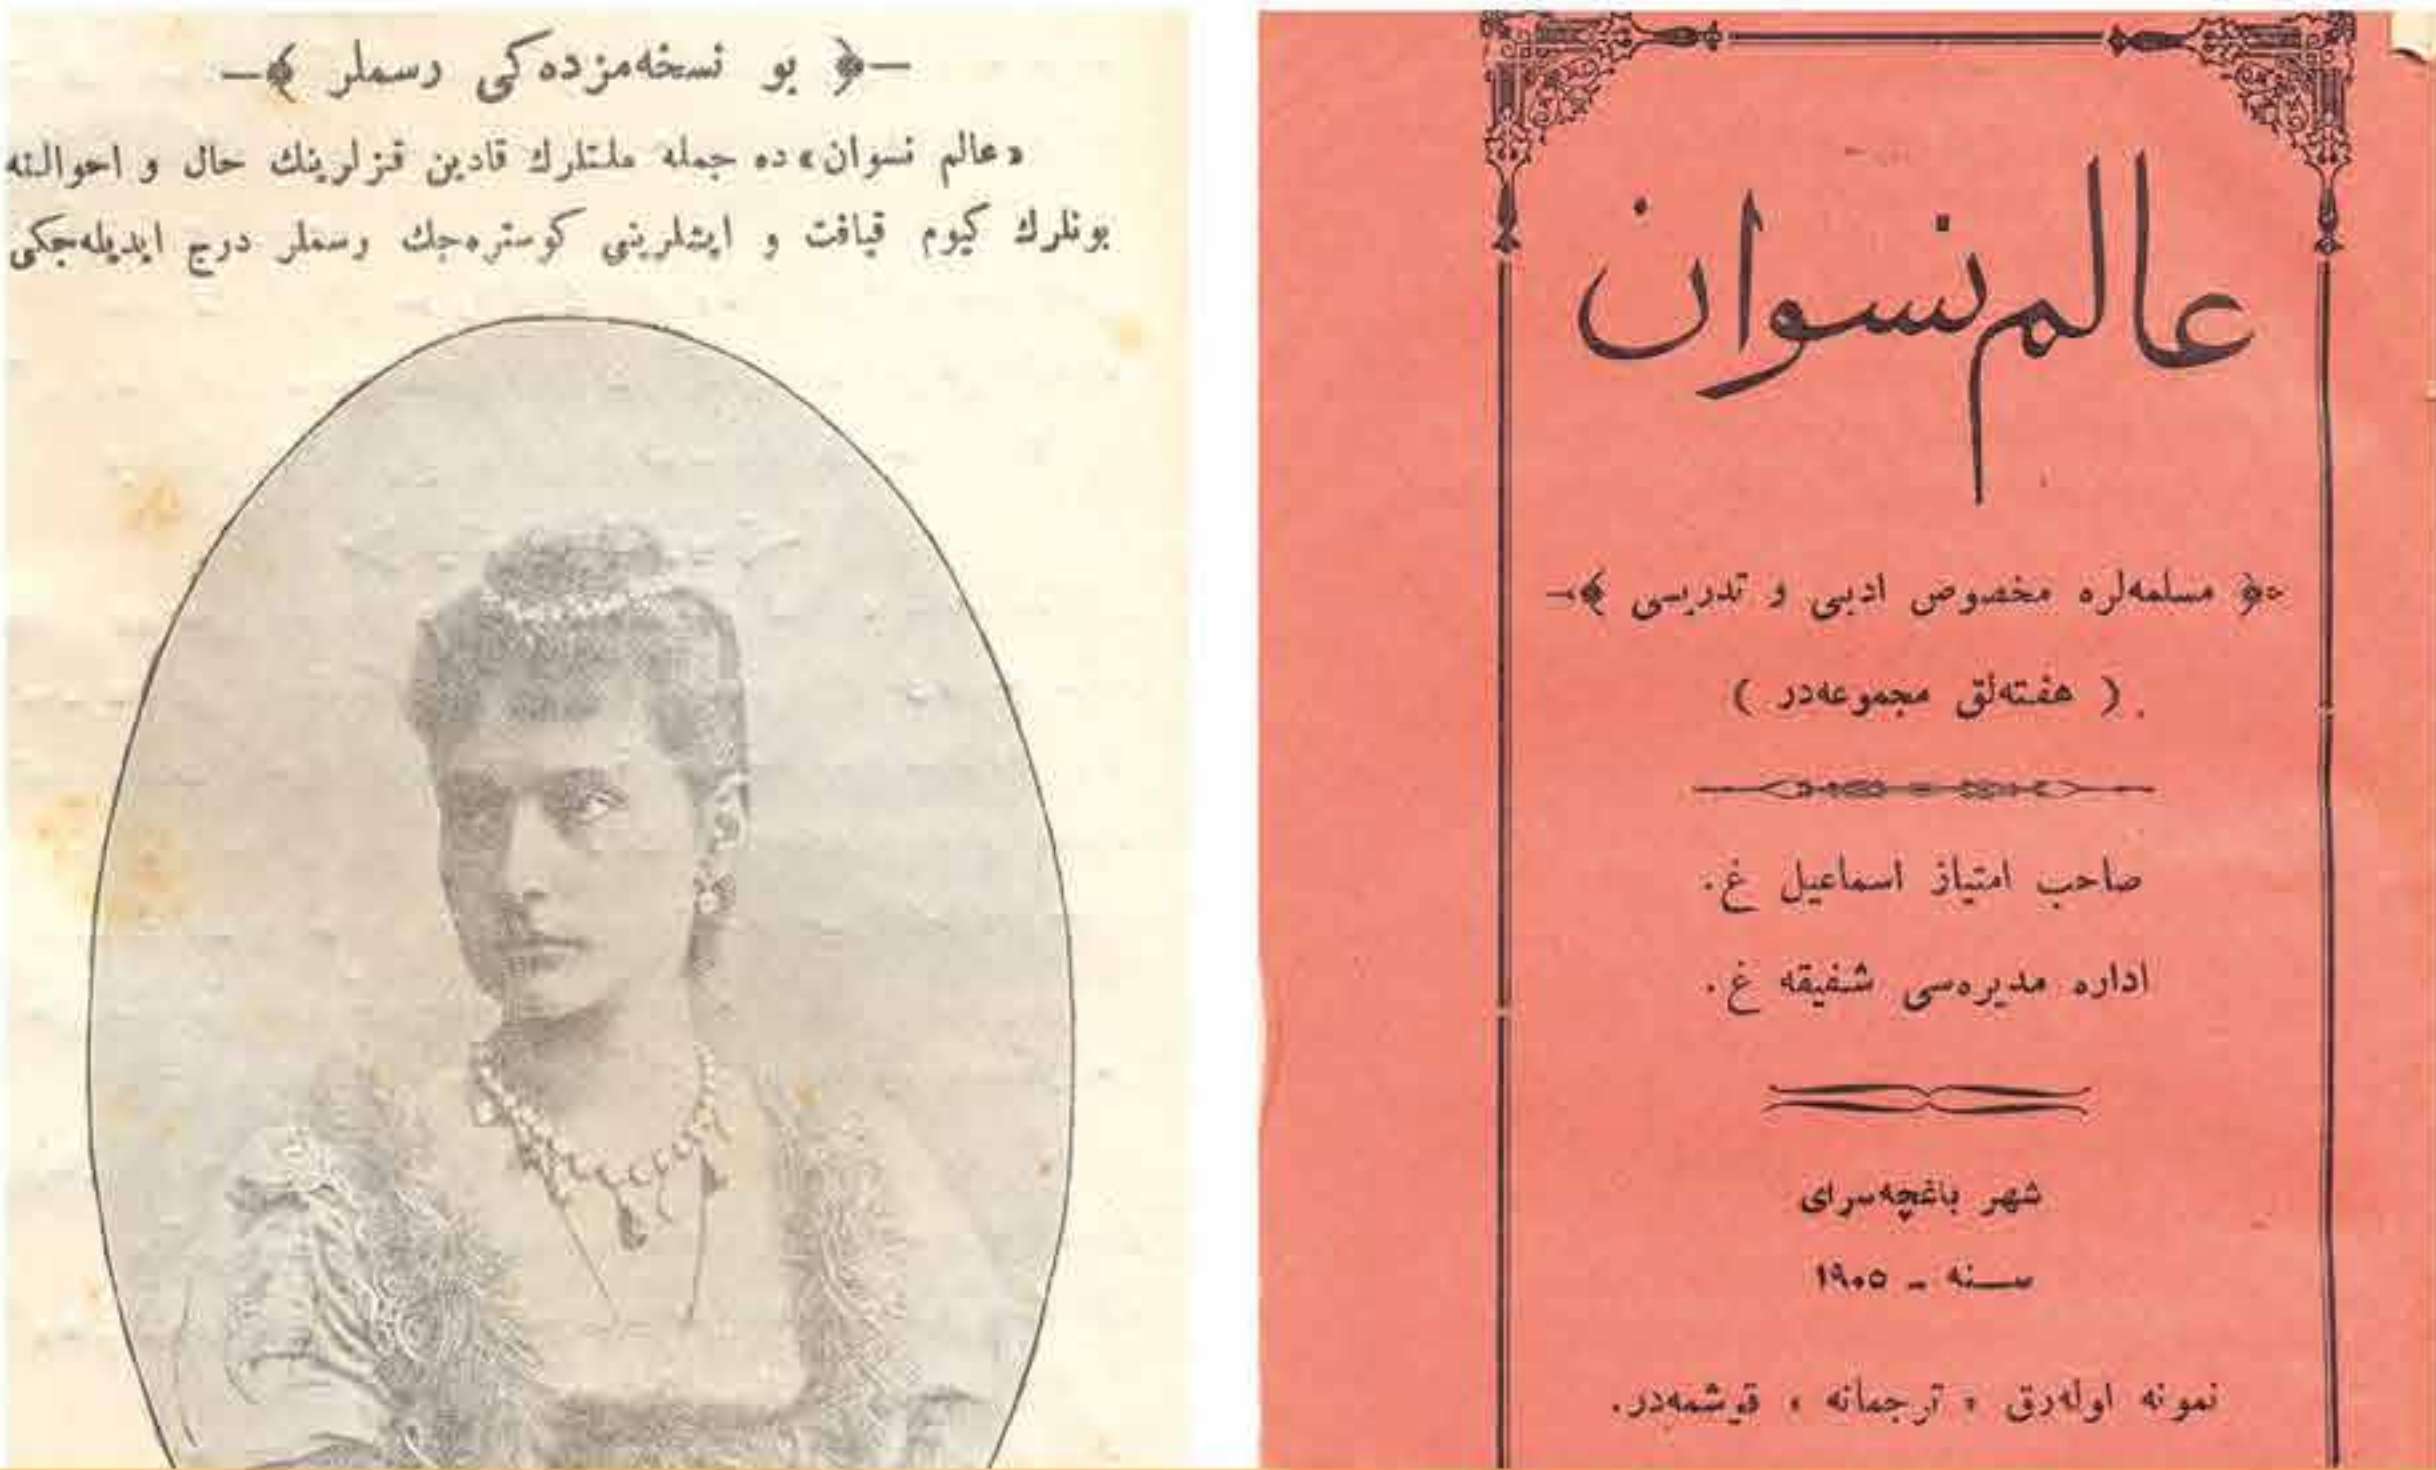 بو نسخه‌مزده‌كی رسملر
«عالم نسوان» ده جمله ملتلرك قادين قزلرينك حال و احوالنه
بونلرك كيوم قيافت و ايشلرينی كوستره‌جك رسملر درج ايديله‌جكی
عالم نسوان
مسلمه‌لره مخصوص ادبی و تدريسی
( هفته‌لق مجموعه‌در )
صاحب امتياز اسماعيل غ.
اداره مديره‌سی شفيقه غ.
شهر باغچه‌سرای
سنه ـ ١٩٠٥
نمونه اوله‌رق «ترجمان»ه قوشمه‌در.